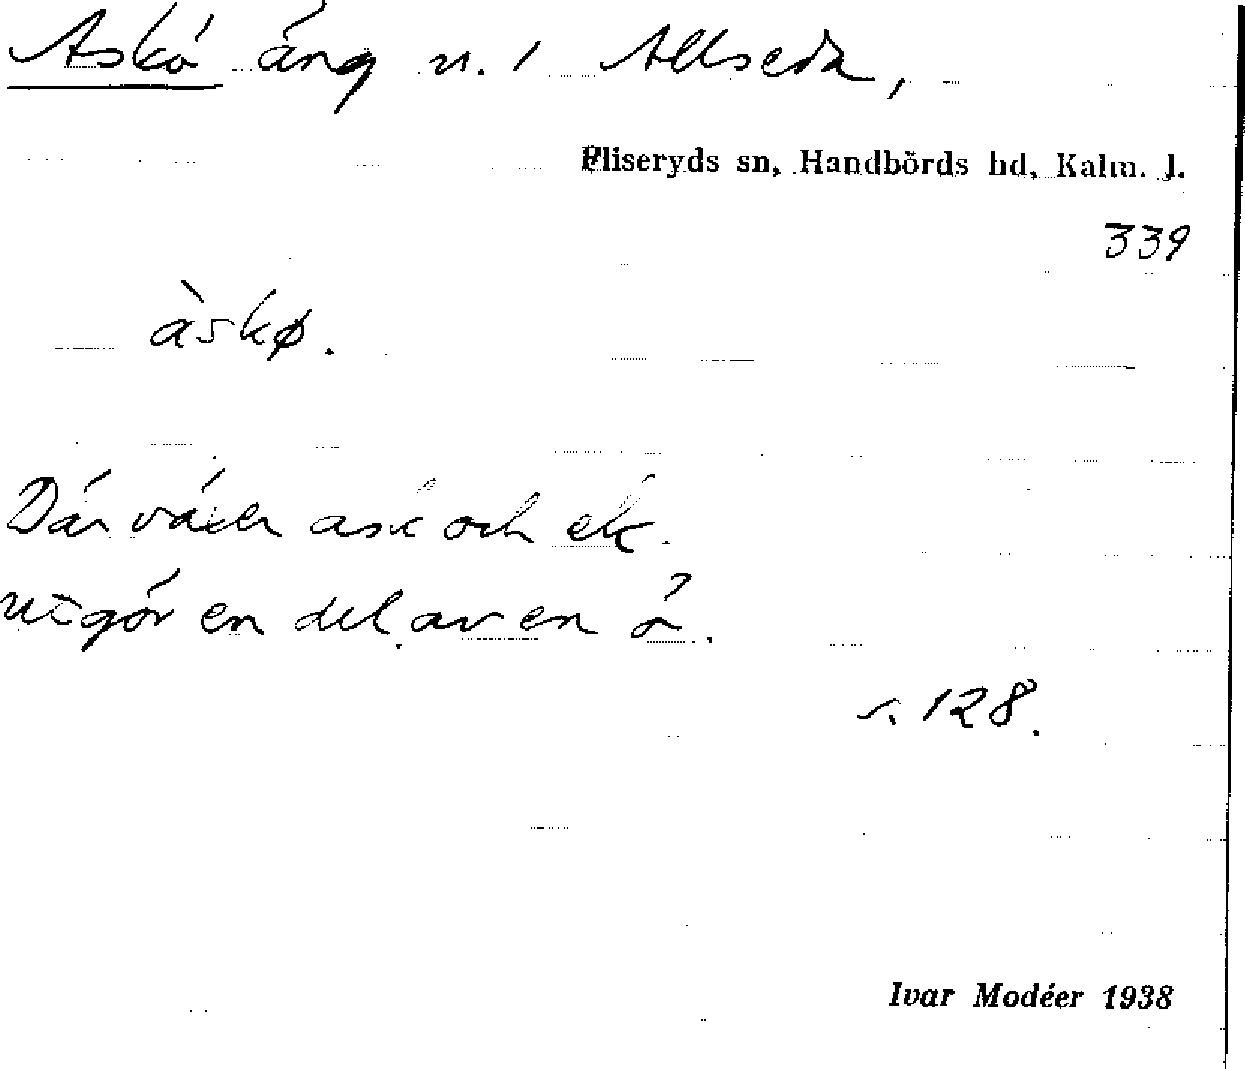 Askö äng n. 1 Allseda,
Fliseryds sn, Handbörds hd, Kalm. l.
339
àskø.
Där växer ask och ek.
utgör en del av en ö.
s. 128.
Ivar Modéer 1938